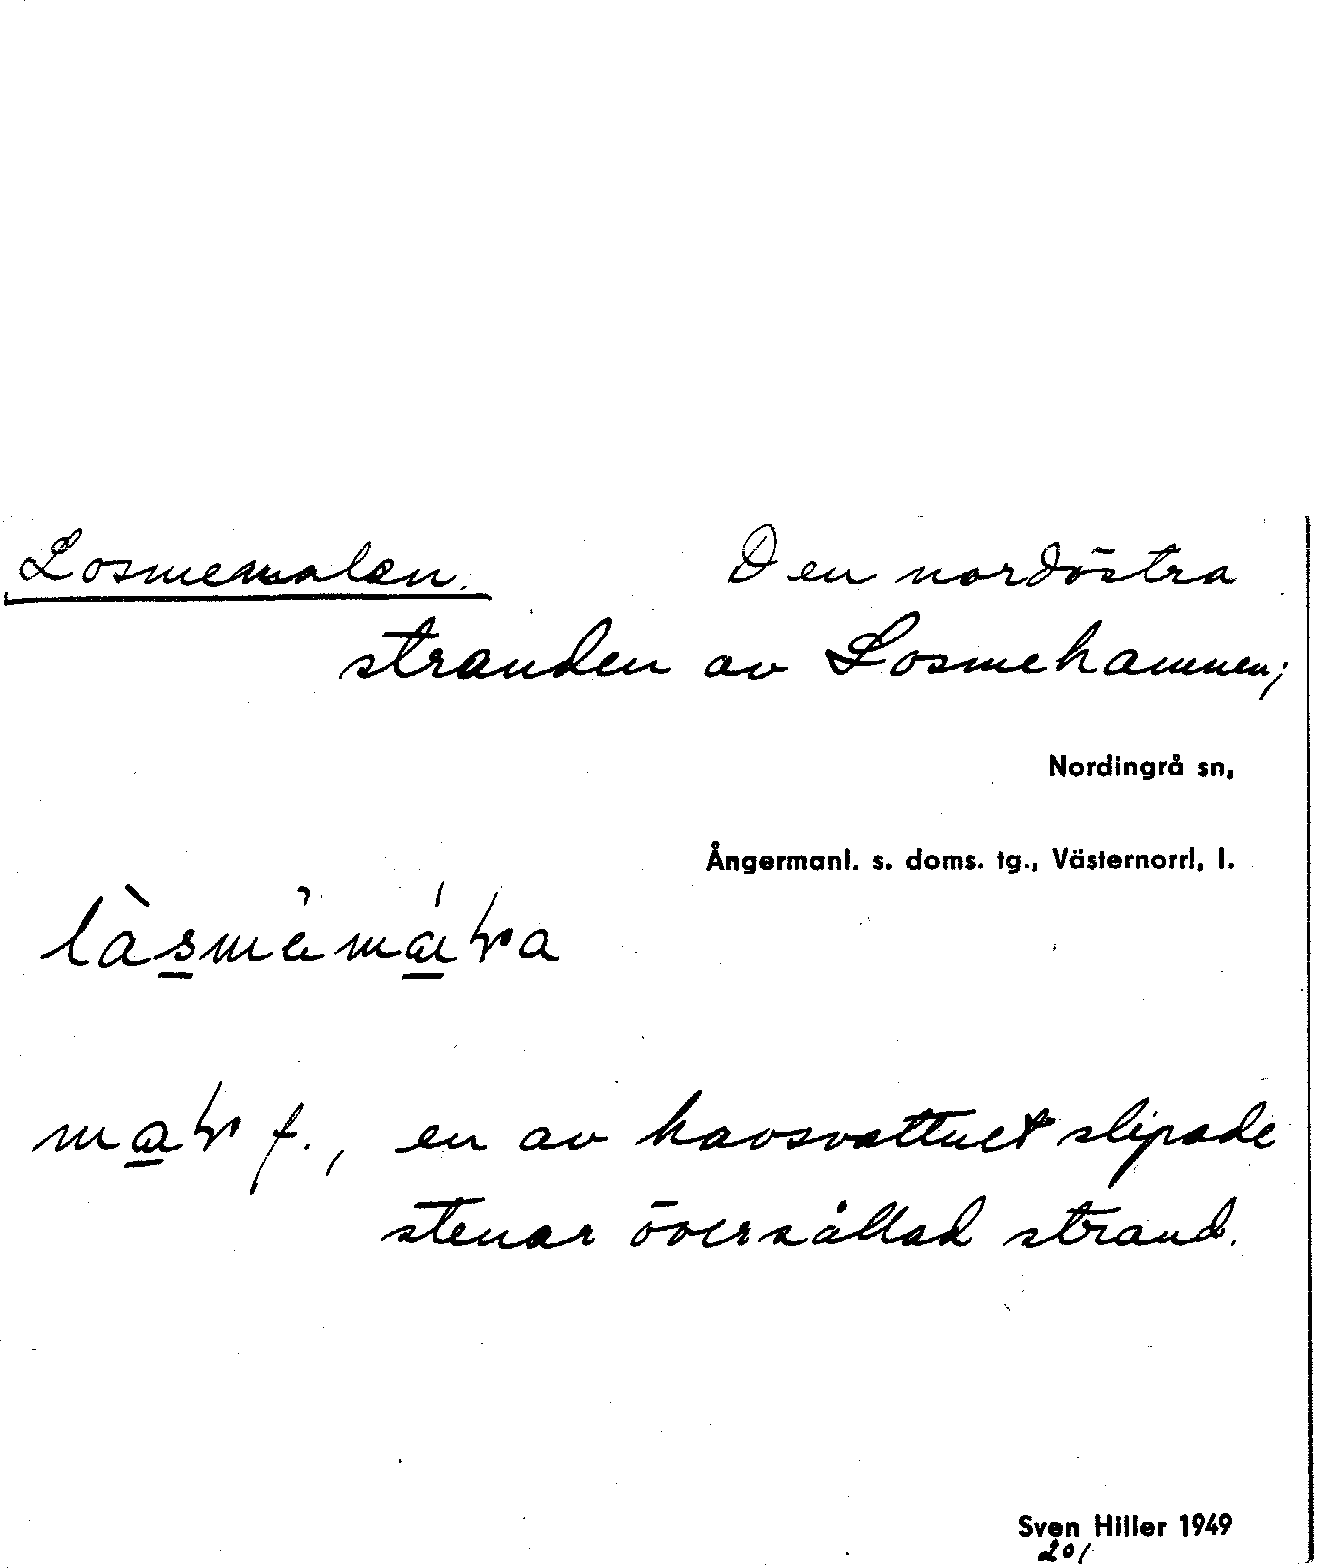 Losmemalen. Den nordöstra
stranden av Losmehamnen;
Nordingrå sn,
Ångermanl. s. doms. tg., Västernorrl. l.
en av havsvattnet slipade
stenar översållad strand.
Sven Hiller 1949
201